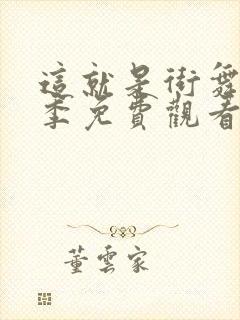 這就是街舞
季免費觀看
董雲家